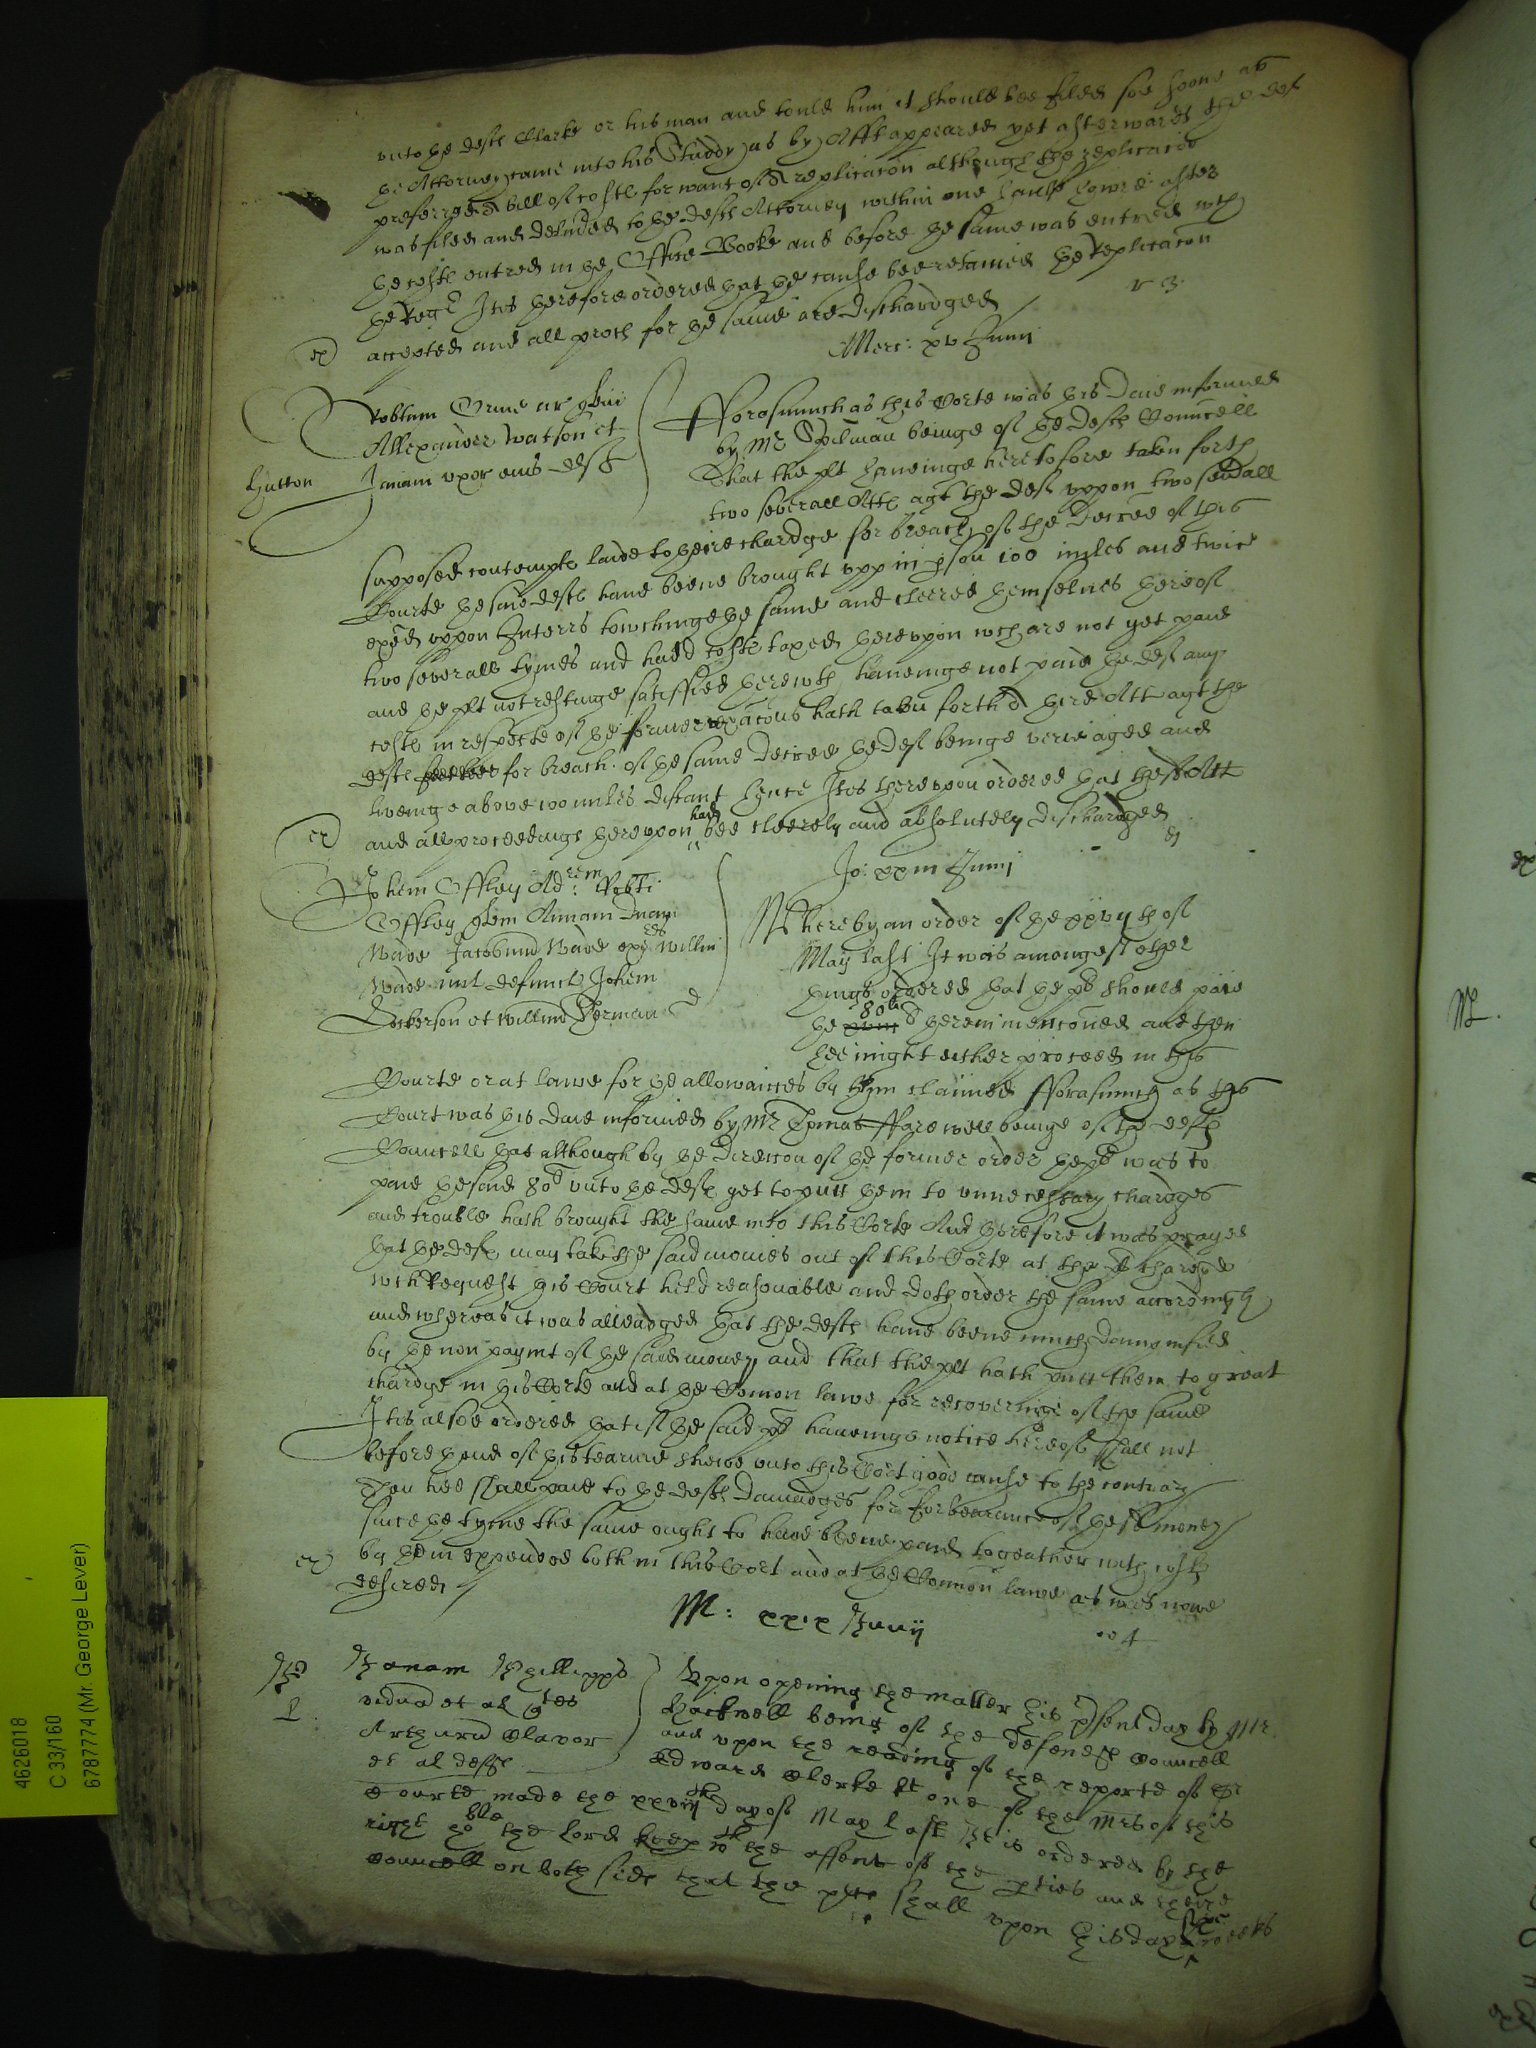 vnto the defts Clarke or his man and tould him it should bee filed soe soone as
the Attorney came into his Studdy as by Afft appeared yet afterwards the deft
preferred a bill of costs for want of a replicacon although the replicacon
was filed and deliuered to the defts Attorney within one half howre after
the costs entred in the Office Booke and before the same was entred wth
the Regr It is therefore ordered that the cause bee retained the Replicacon
accepted and all proces for the same are dischardged
Merc: xv Junij
Robtum Orme ar quer
Allexander Watson et
Janam vxor eius defts
Hutton
Fforasmuch as this Corte was this Daie informed
by Mr Spilman beinge of the defts Councell
That the plt haveinge heretofore taken forth
two severall Atts agt the deft vppon two severall
supposed contempts laide to theire chardge for breach of the Decree of this
Courte the said defts have beene brought vpp in pson 100 miles and twice
exed vppon Interrs towchinge the same and cleered themselves thereof
two severall tymes and hadd costs taxed therevpon wch are not yet paid
and the plt not restinge satisfied therewth haveinge not paid the deft any
costs in respecte of the former vexacons hath taken forth a third Att agt the
defts for breach of the same Decree the deft beinge verie aged and
liveinge above 100 miles distant hence It is therevpon ordered that the sd Att
and all proceedings therevpon had bee cleerely and absolutely dischardged
Jo: xxiij Junij
Johem Offley Adrem Robti
Offley quer Annam Dnam
Wade Jacobum Wade exres Willmi
Wade mil defunct Johem
Dickerson et Willmm Herman d
Whereby an order of the xxvijth of
May last It was amongest other
things ordered that the plt should paie
the 80li therein mencioned and then
hee might either proceed in this
Courte or at lawe for the allowances by him claimed Fforasmuch as this
Court was this daie informed by Mr Thomas Ffarewell beinge of the defts
Councell that although by the direccon of the former order the plt was to
paie the said 80li vnto the defts yet to putt them to vnnecessary chardges
and trouble hath brought the same into this Corte And therefore it was prayed
that the defts may take the said monies out of this Corte at the plts chardge
wch Request this Court held reasonable and doth order the same accordingly
and whereas it was alleadged that the defts have beene much damnified
by the non paymt of the said money and that the plt hath putt them to great
chardge in this Corte and at the Comon lawe for recoveringe of the same
It is alsoe ordered that if the said plt haveinge notice hereof shall not
before thend of this tearme shewe vnto this Cort good cause to the contrary
Then hee shall paie to the defts Damadges for forbearance of the sd money
since the tyme the same ought to have beene paid togeather with costs
by them expended both in this Cort and at the Comon lawe as was nowe
desired
M: xxix Junij
Janam Phillipps
vidua et al qtes
Arthurū Clavor
et al defts
Vpon opening the matter this psent day by Mr
Hackwell being of the defends Councell
and vpon the reading of the reporte of Sr
Edward Clerke kt one of the Mrs of this
Courte made the xxviijth day of May last It is ordered by the
right hoble the Lord Keep wth the assent of the pties and theire
Councell on both sides that the plts shall vpon this day sixe weeks
4626018
C 33/160
6787774 (Mr. George Lever)